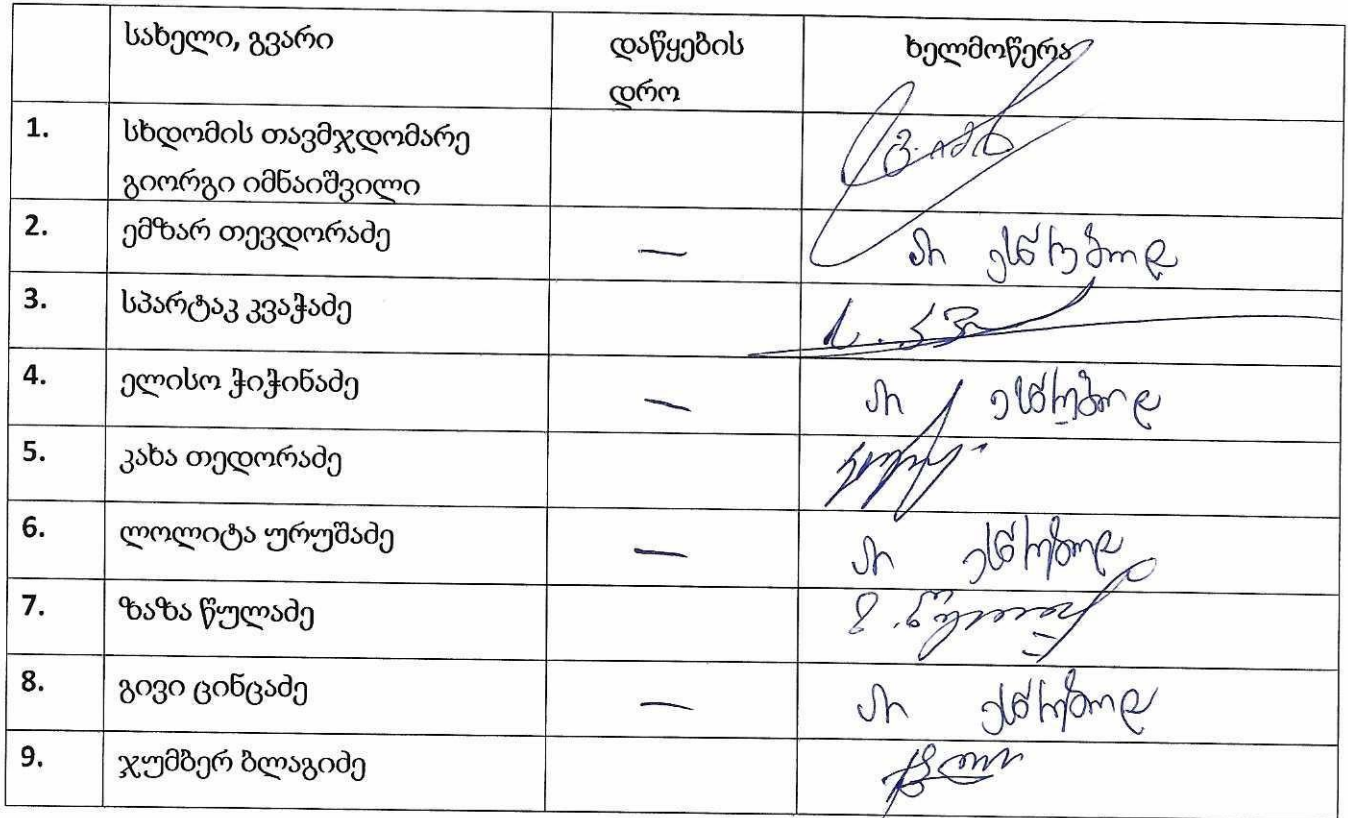 სახელი, გვარი დაწყების ხელმოწერა
დრო
1. სხდომის თავმჯდომარე
გიორგი იმნაიშვილი
2. ემზარ თევდორაძე — არ ესწრებოდა
3. სპარტაკ კვაჭაძე ს. კვ
4. ელისო ჭიჭინაძე — არ ესწრებოდა
5. კახა თედორაძე
6. ლოლიტა ურუშაძე — არ ესწრებოდა
7. ზაზა წულაძე
8. გივი ცინცაძე — არ ესწრებოდა
9. ჯუმბერ ბლაგიძე